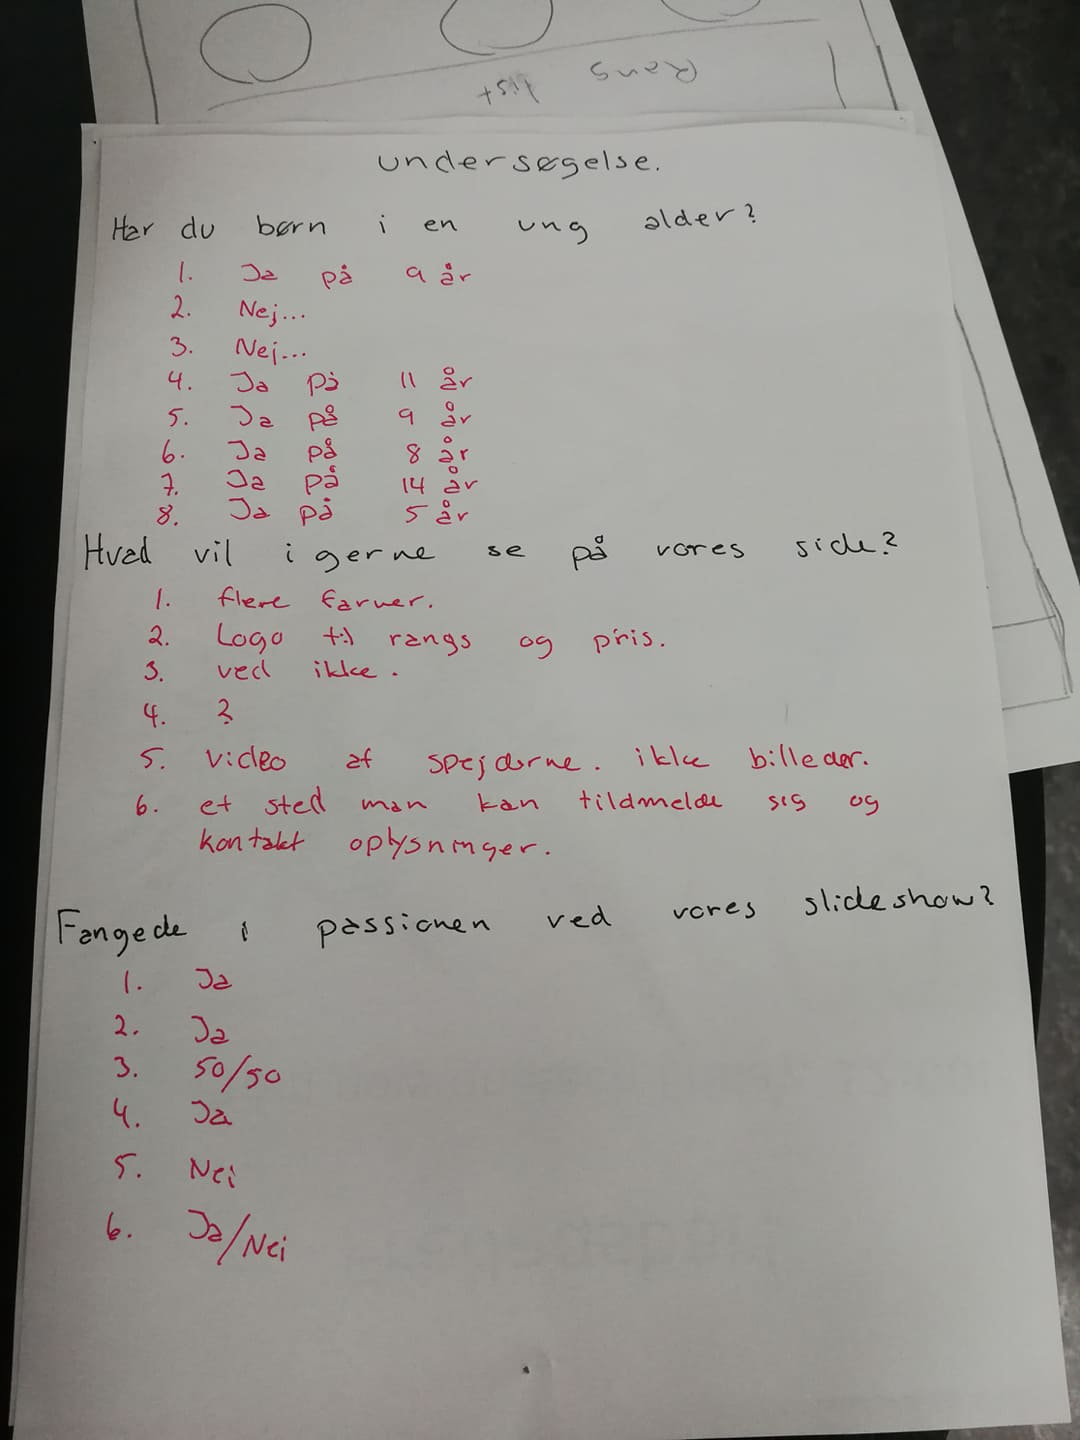 Rangs list
undersøgelse.
Har du børn i en ung alder?
1. Ja på 9 år
2. Nej...
3. Nej...
4. Ja på 11 år
5. Ja på 9 år
6. Ja på 8 år
7. Ja på 14 år
8. Ja på 5 år
Hvad vil i gerne se på vores side?
1. flere farver.
2. Logo til rangs og pris.
3. ved ikke.
4. ?
5. video af spejderne. ikke billeder.
6. et sted man kan tildmelde sig og
kontakt oplysninger.
Fangede i passionen ved vores slideshow?
1. Ja
2. Ja
3. 50/50
4. Ja
5. Nei
6. Ja/Nei